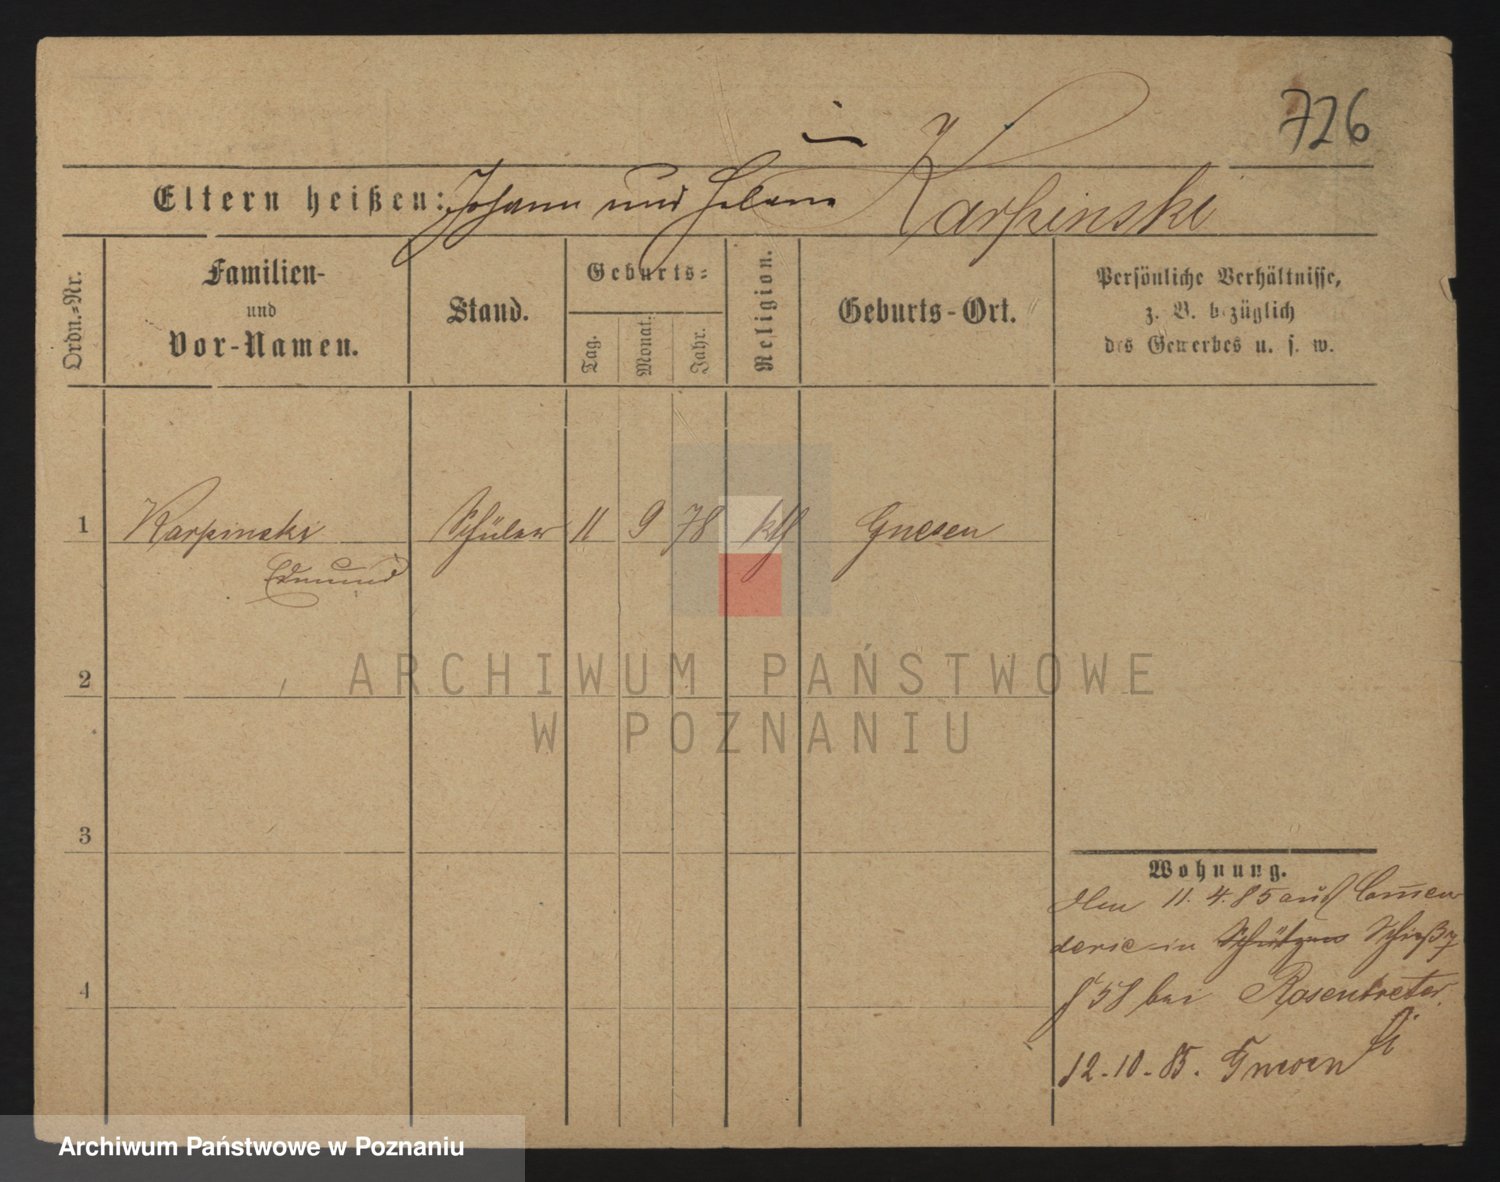 726
Eltern heißen: Johann und Helene Karpinski
Ordn.-Nr.
Familien-
und
Vor-Namen.
Stand.
Geburts:
Tag.
Monat.
Jahr.
Religion.
Geburts-Ort.
Persönliche Verhältnisse,
z. B. bezüglich
des Gewerbes u. s. w.
1 Karpinski Schüler 11 9 78 kth Gnesen
Edmund
2
3
4
Wohnung.
Den 11. 4. 85 aus
in Schützen
58 bei Rosentreter.
12-10-85. Gnesen
ARCHIWUM PAŃSTWOWE
W POZNANIU
Archiwum Państwowe w Poznaniu